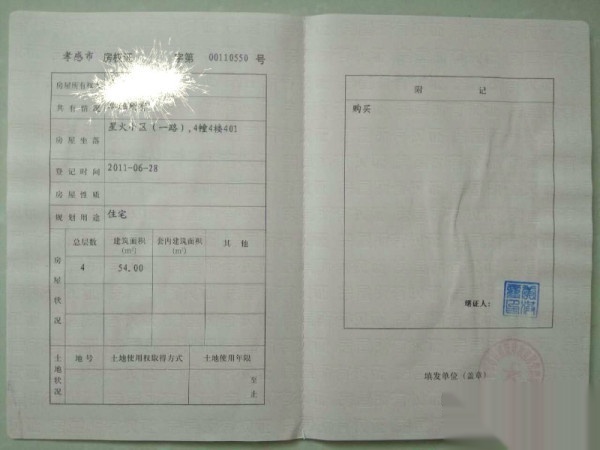 孝感市 房权证 字第 00110550 号
房屋所有权人
共有情况
房屋坐落 星火小区(一路),4幢4楼401
登记时间 2011-06-28
房屋性质
规划用途 住宅
房屋状况
总层数 建筑面积(m²) 套内建筑面积(m²) 其他
4 54.00
土地状况
地号 土地使用权取得方式 土地使用年限
至
止
附 记
购买
缮证人:
填发单位(盖章)